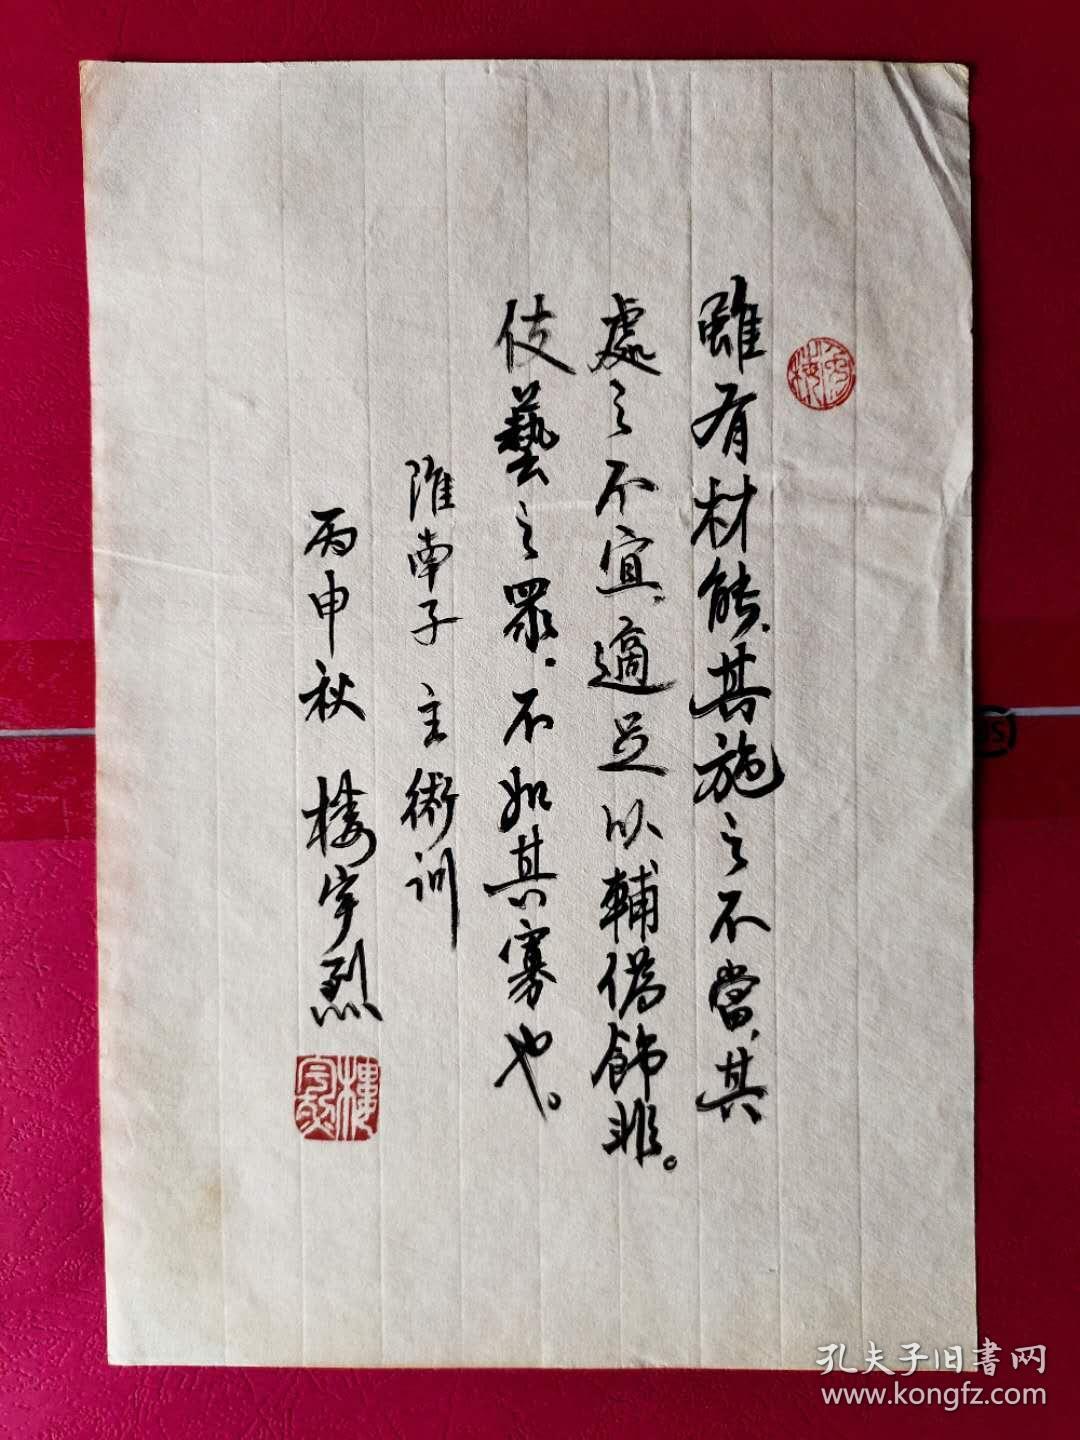 雖有材能、其施之不當、其
處之不宜、適足以輔僞飾非。
伎藝之眾、不如其寡也。
淮南子 主術訓
丙申秋 楼宇烈
樓宇烈
孔夫子旧書网
www.kongfz.com